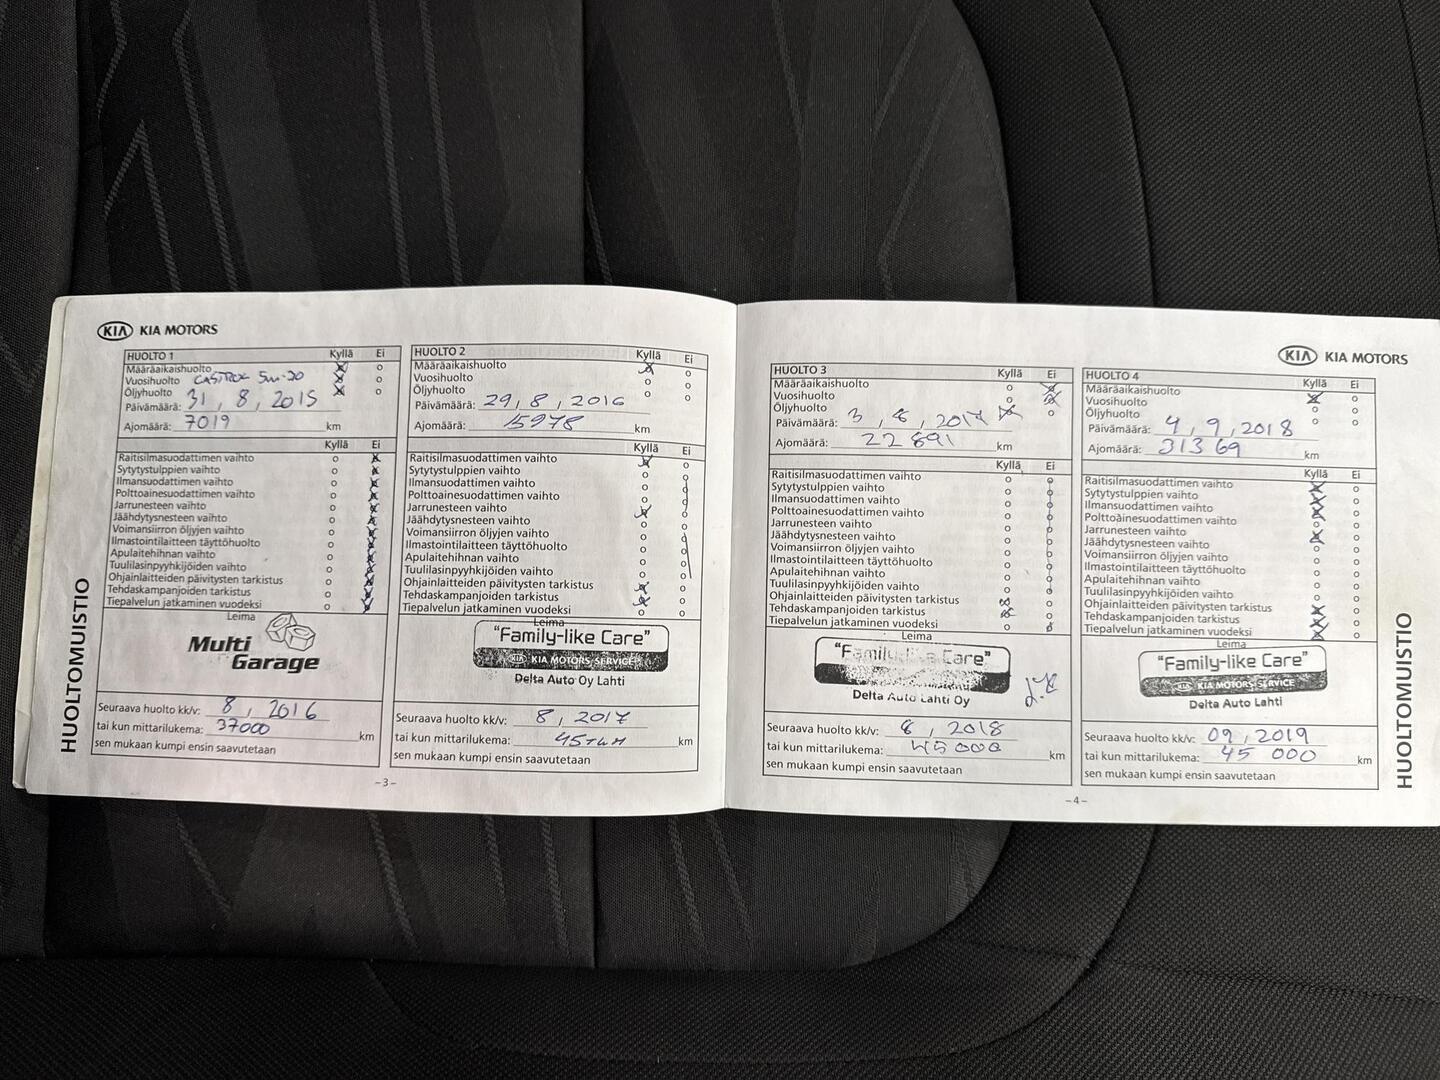 KIA KIA MOTORS
HUOLTOMUISTIO
HUOLTO 1 Kyllä Ei
Määräaikaishuolto x o
Vuosihuolto CASTROL 5w-30 x o
Öljyhuolto x o
Päivämäärä: 31, 8, 2015
Ajomäärä: 7019 km
Kyllä Ei
Raitisilmasuodattimen vaihto o x
Sytytystulppien vaihto o x
Ilmansuodattimen vaihto o x
Polttoainesuodattimen vaihto o x
Jarrunesteen vaihto o x
Jäähdytysnesteen vaihto o x
Voimansiirron öljyjen vaihto o x
Ilmastointilaitteen täyttöhuolto o x
Apulaitehihnan vaihto o x
Tuulilasinpyyhkijöiden vaihto o x
Ohjainlaitteiden päivitysten tarkistus o x
Tehdaskampanjoiden tarkistus o x
Tiepalvelun jatkaminen vuodeksi o x
Leima
Multi
Garage
Seuraava huolto kk/v: 8, 2016
tai kun mittarilukema: 37000 km
sen mukaan kumpi ensin saavutetaan
HUOLTO 2 Kyllä Ei
Määräaikaishuolto x o
Vuosihuolto o o
Öljyhuolto o o
Päivämäärä: 29, 8, 2016
Ajomäärä: 15978 km
Kyllä Ei
Raitisilmasuodattimen vaihto x o
Sytytystulppien vaihto o o
Ilmansuodattimen vaihto o o
Polttoainesuodattimen vaihto o o
Jarrunesteen vaihto x o
Jäähdytysnesteen vaihto o o
Voimansiirron öljyjen vaihto o o
Ilmastointilaitteen täyttöhuolto o o
Apulaitehihnan vaihto o o
Tuulilasinpyyhkijöiden vaihto o o
Ohjainlaitteiden päivitysten tarkistus x o
Tehdaskampanjoiden tarkistus x o
Tiepalvelun jatkaminen vuodeksi o o
Leima
"Family-like Care"
KIA KIA MOTORS SERVICE
Delta Auto Oy Lahti
Seuraava huolto kk/v: 8, 2017
tai kun mittarilukema: 45 TKM km
sen mukaan kumpi ensin saavutetaan
-3-
KIA KIA MOTORS
HUOLTO 3 Kyllä Ei
Määräaikaishuolto o x
Vuosihuolto o x
Öljyhuolto x o
Päivämäärä: 3, 8, 2017
Ajomäärä: 22891 km
Kyllä Ei
Raitisilmasuodattimen vaihto o o
Sytytystulppien vaihto o o
Ilmansuodattimen vaihto o o
Polttoainesuodattimen vaihto o o
Jarrunesteen vaihto o o
Jäähdytysnesteen vaihto o o
Voimansiirron öljyjen vaihto o o
Ilmastointilaitteen täyttöhuolto o o
Apulaitehihnan vaihto o o
Tuulilasinpyyhkijöiden vaihto o o
Ohjainlaitteiden päivitysten tarkistus x o
Tehdaskampanjoiden tarkistus x o
Tiepalvelun jatkaminen vuodeksi o o
Leima
"Family-like Care"
Delta Auto Lahti Oy
Seuraava huolto kk/v: 8, 2018
tai kun mittarilukema: 45000 km
sen mukaan kumpi ensin saavutetaan
HUOLTO 4 Kyllä Ei
Määräaikaishuolto x o
Vuosihuolto o o
Öljyhuolto o o
Päivämäärä: 4, 9, 2018
Ajomäärä: 31369 km
Kyllä Ei
Raitisilmasuodattimen vaihto x o
Sytytystulppien vaihto x o
Ilmansuodattimen vaihto x o
Polttoainesuodattimen vaihto o o
Jarrunesteen vaihto x o
Jäähdytysnesteen vaihto o o
Voimansiirron öljyjen vaihto o o
Ilmastointilaitteen täyttöhuolto o o
Apulaitehihnan vaihto o o
Tuulilasinpyyhkijöiden vaihto o o
Ohjainlaitteiden päivitysten tarkistus x o
Tehdaskampanjoiden tarkistus x o
Tiepalvelun jatkaminen vuodeksi x o
Leima
"Family-like Care"
KIA KIA MOTORS SERVICE
Delta Auto Lahti
Seuraava huolto kk/v: 09, 2019
tai kun mittarilukema: 45 000 km
sen mukaan kumpi ensin saavutetaan
-4-
HUOLTOMUISTIO